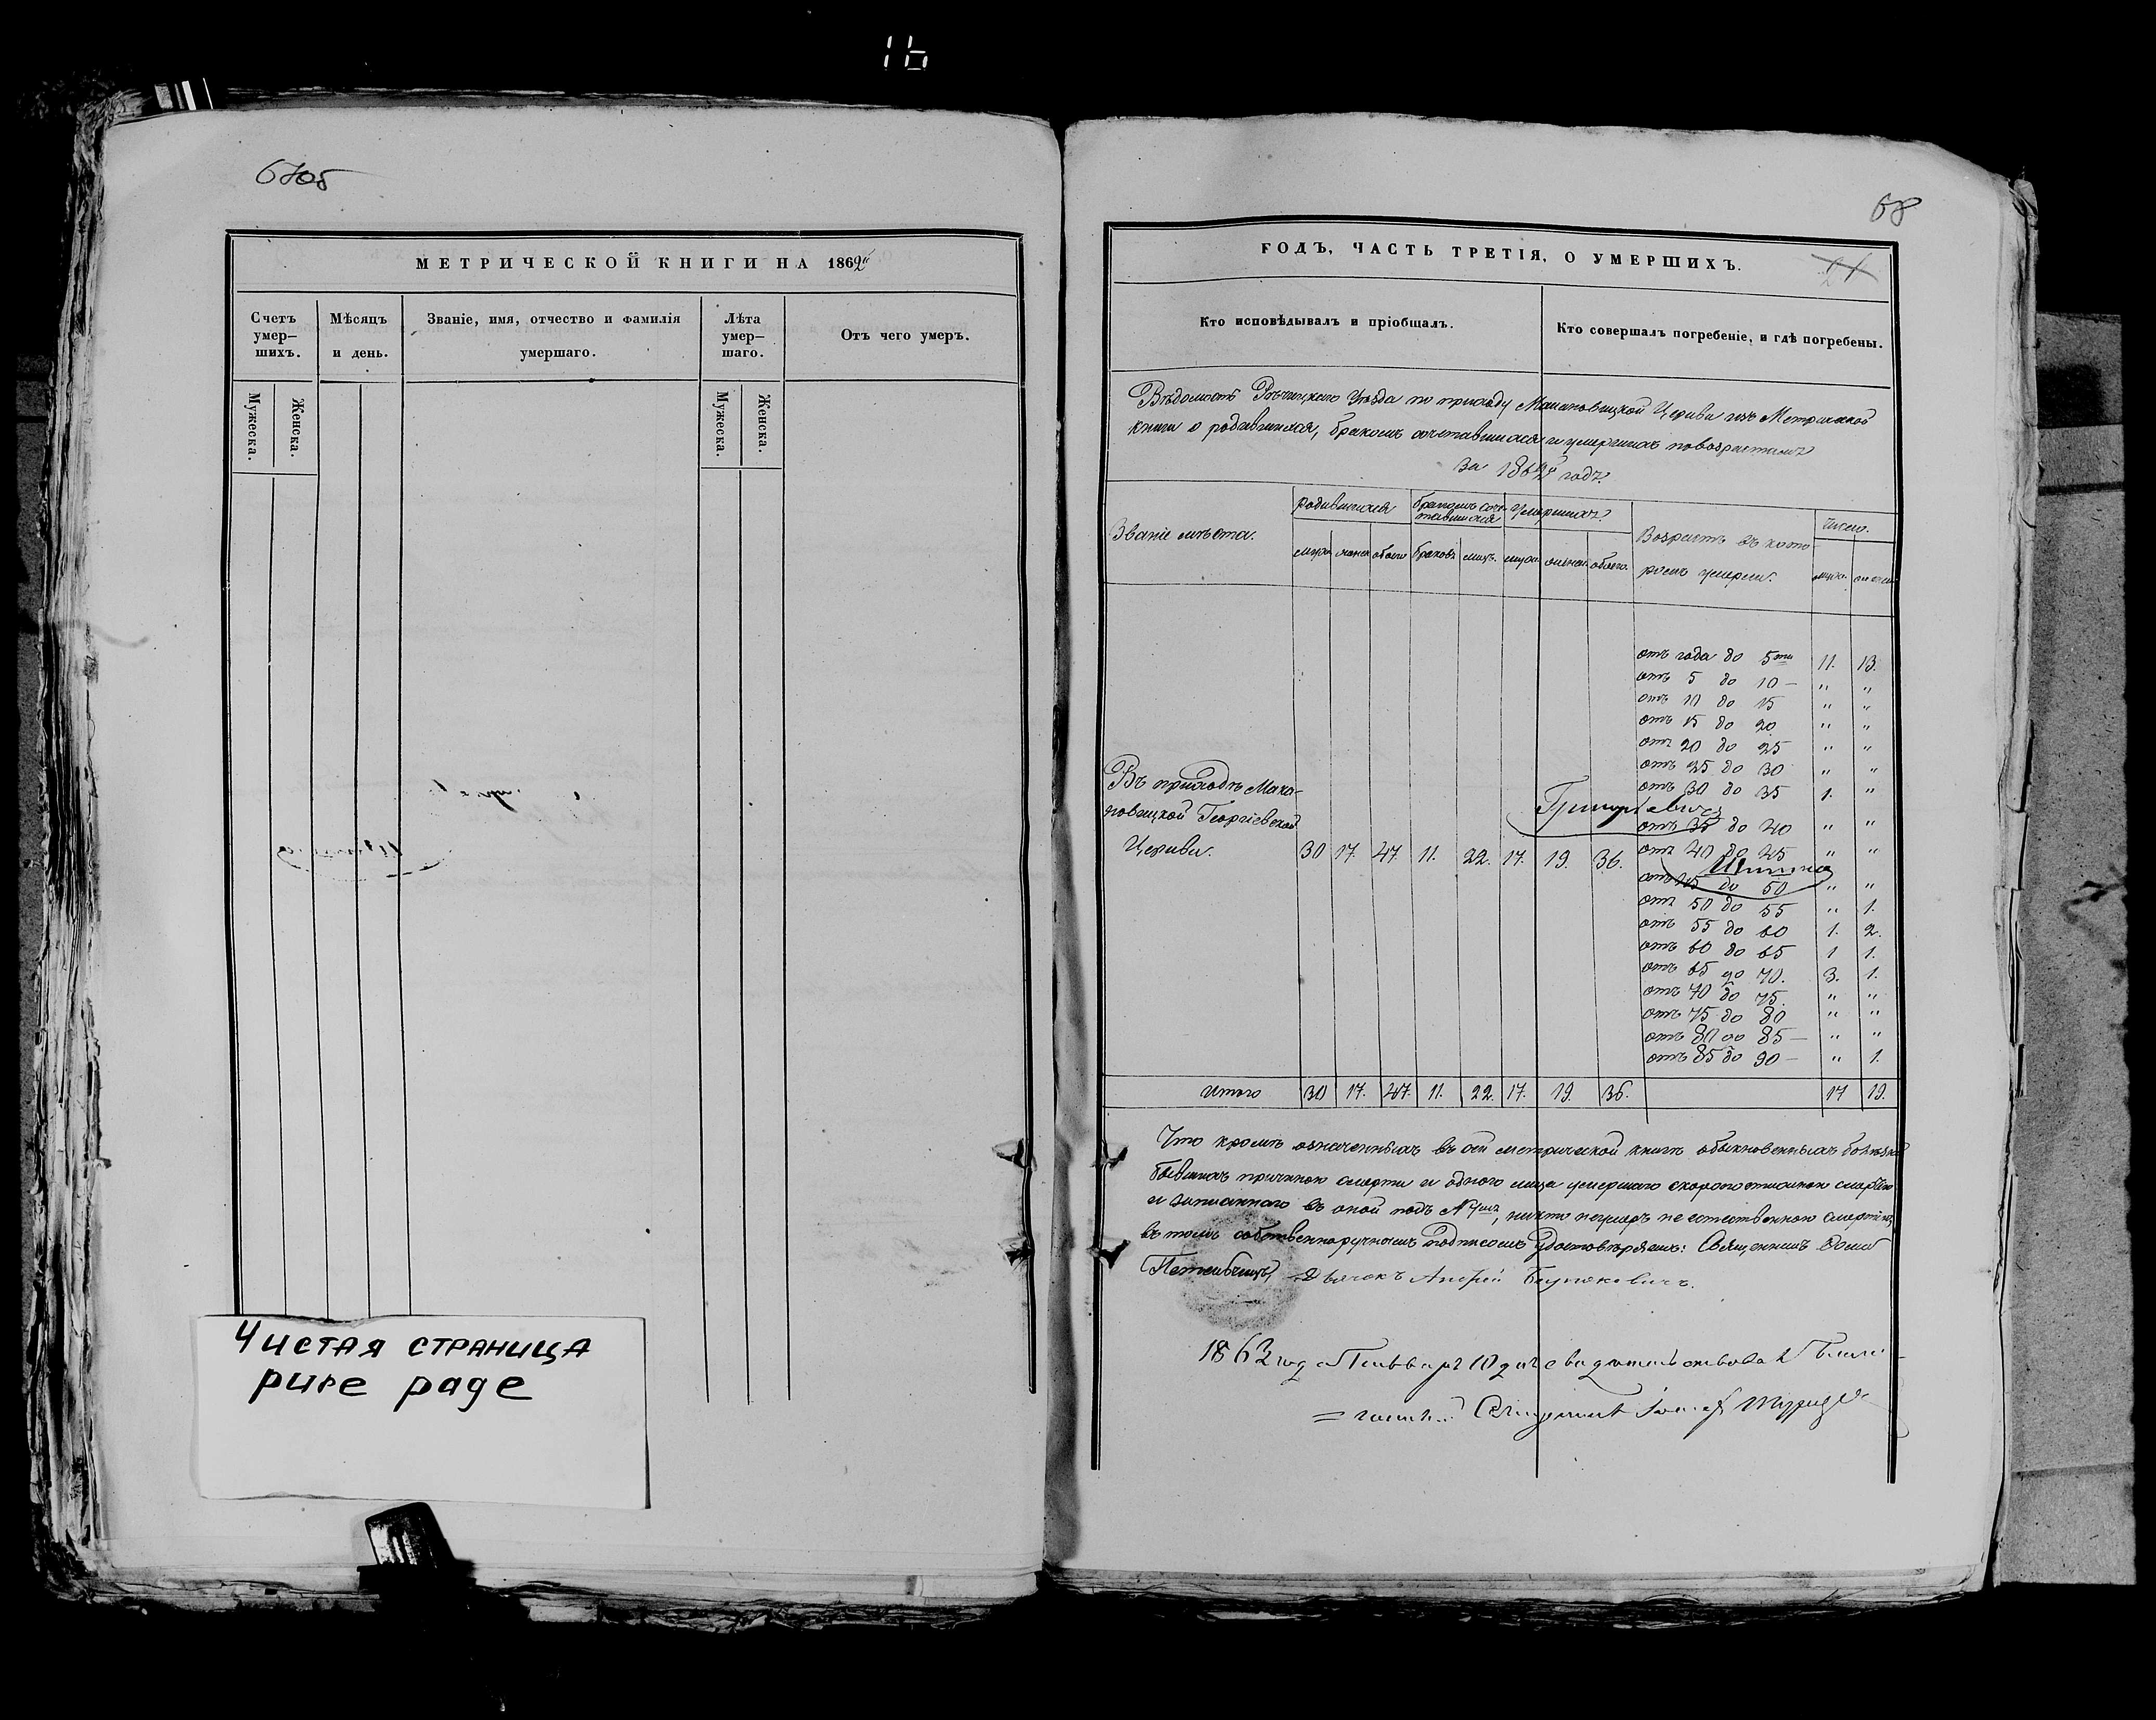 16
6705
МЕТРИЧЕСКОЙ КНИГИ НА 1862й
Счетъ умер–шихъ.
Мѣсяцъ и день.
Званіе, имя, отчество и фамилія умершаго.
Лѣта умер–шаго.
Отъ чего умеръ.
Мужеска.
Женска.
Мужеска.
Женска.
Чистая страница
pure page
68
21
ГОДЪ, ЧАСТЬ ТРЕТІЯ, О УМЕРШИХЪ.
Кто исповѣдывалъ и пріобщалъ.
Кто совершалъ погребеніе, и гдѣ погребены.
Вѣдомость Рѣчицкаго Уѣзда по приходу Махановицкой Церкви изъ Метрической
книги о родившихся, бракомъ сочетавшихся и умершихъ повозрастамъ
За 1862й годъ.
Званіе мѣста.
родившихся
бракомъ соче-
тавшихся
Умершихъ.
Возрастъ въ кото-
ромъ умерли.
Число.
муж. женск. обоего браковъ лицъ. муж. женск. обоего. муж. женск.
отъ года до 5ти 11. 13.
отъ 5 до 10 – " "
отъ 10 до 15 " "
отъ 15 до 20 " "
отъ 20 до 25 " "
отъ 25 до 30 " "
отъ 30 до 35 1. "
Григоріевичъ
отъ 35 до 40 " "
Въ приходѣ Маха-
новицкой Георгіевской
Церкви. 30 17. 47. 11. 22. 17. 19. 36.
отъ 40 до 45 " "
отъ 45 до 50 " "
отъ 50 до 55 " 1.
отъ 55 до 60 1. 2.
отъ 60 до 65 1 1.
отъ 65 до 70. 3. 1.
отъ 70 до 75. " "
отъ 75 до 80 " "
отъ 80 до 85 – " "
отъ 85 до 90 – " 1.
Итого 30 17. 47. 11. 22. 17. 19. 36. 17 19.
Что кромѣ означенныхъ въ сей метрической книгѣ обыкновенныхъ болѣзней
бывшихъ причиною смерти и одного лица умершаго скоропостижною смертію
и записаннаго въ оной подъ N, никто неумеръ не естественною смертію
въ томъ собственноручнымъ подписомъ удостовѣряемъ: Священникъ
Дьячокъ Андрей
1863 год
Священникъ